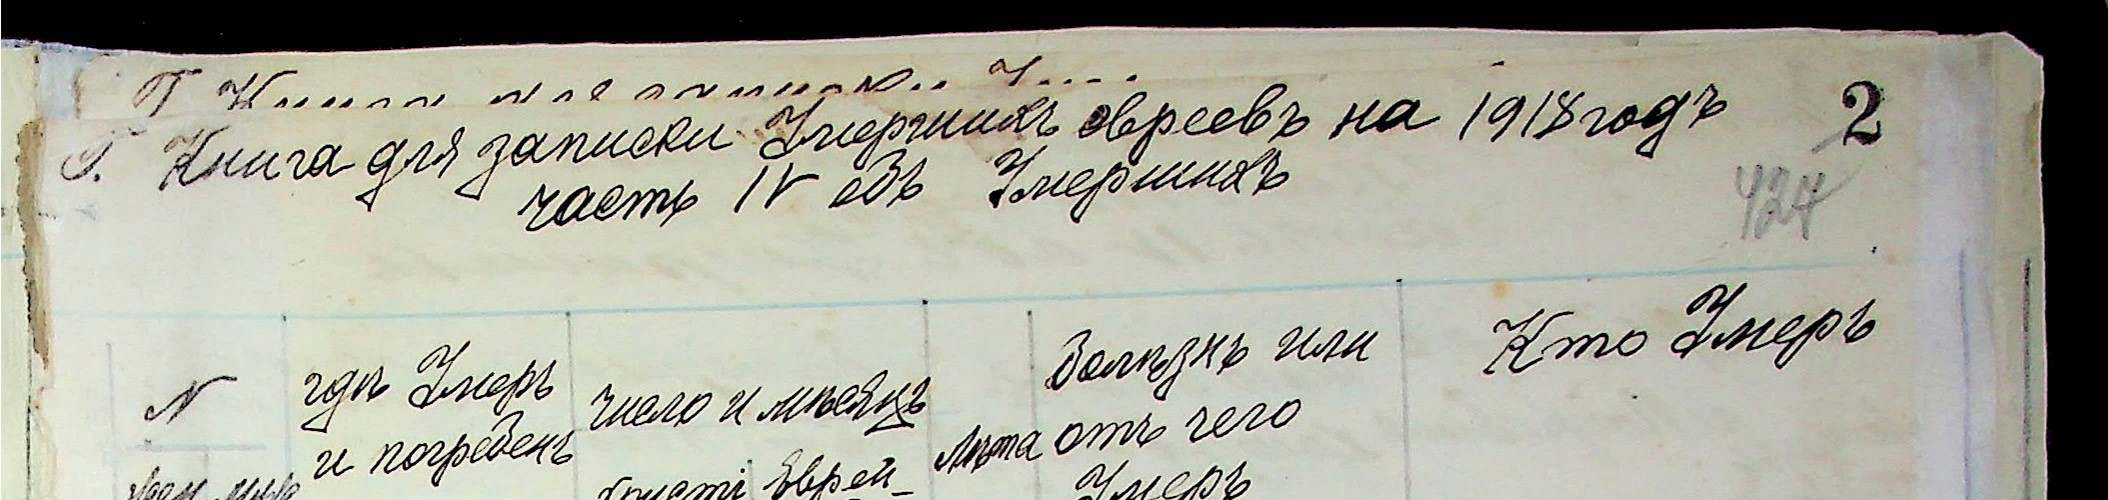 Г. Книга для записки У
Г. Книга для записки Умершихъ евреевъ на 1918 годъ 2
часть IV объ Умершихъ
424
N
гдѣ Умеръ
и погребенъ
число и мѣсяцъ
Христі Еврей-
Лѣта
Болѣзнь или
отъ чего
Умеръ
Кто Умеръ